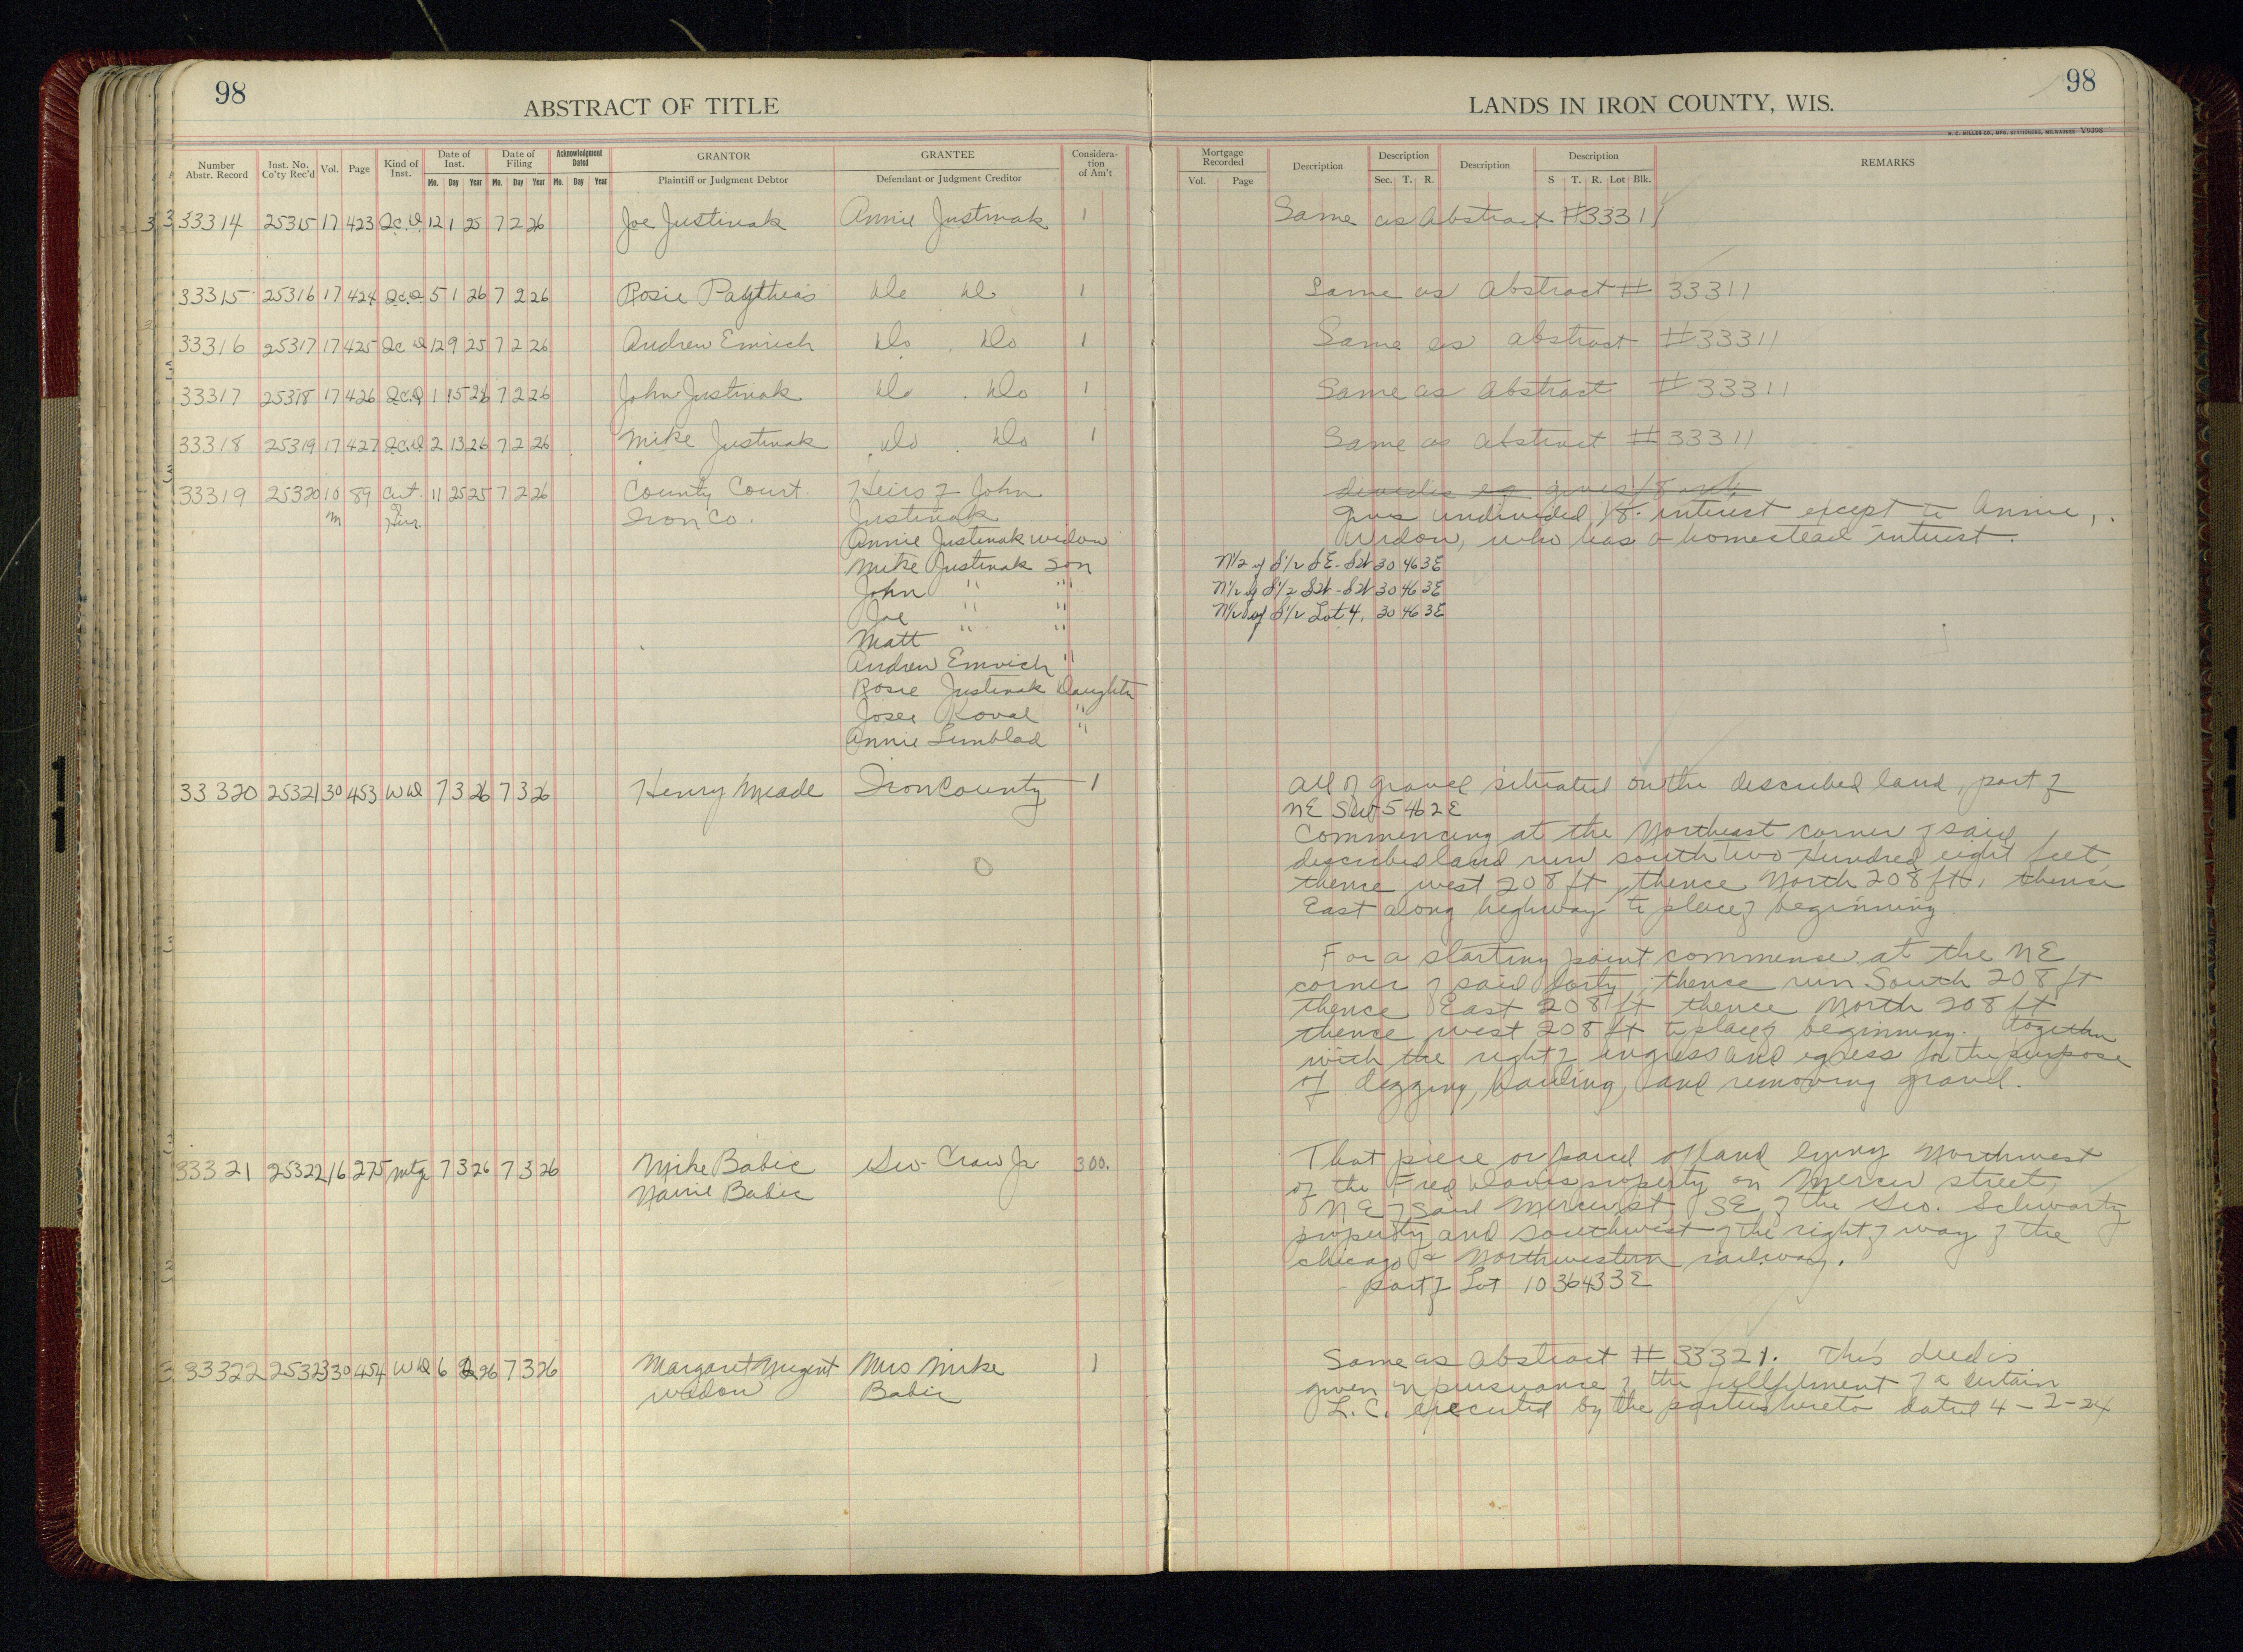 98
ABSTRACT OF TITLE
Number Abstr. Record | Inst. No. Co'ty Rec'd | Vol. | Page | Kind of Inst. | Date of Inst. Mo. Day Year | Date of Filing Mo. Day Year | Acknowledgment Dated Mo. Day Year | GRANTOR Plaintiff or Judgment Debtor | GRANTEE Defendant or Judgment Creditor | Consideration of Am't
33314 25315 17 423 Q.C.D. 12 1 25 7 2 26 Joe Justinak Annie Justinak 1
33315 25316 17 424 Q.C.D. 5 1 26 7 2 26 Rosie Do Do 1
33316 25317 17 425 Q.C D 12 9 25 7 2 26 Andrew Emrich Do Do 1
33317 25318 17 426 Q.C.D 1 15 26 7 2 26 John Justinak Do Do 1
33318 25319 17 427 Q.C.D 2 13 26 7 2 26 Mike Justinak Do Do 1
33319 25320 10 89 Cert. 11 25 25 7 2 26 County Court Heirs of John
M of Heir. Iron Co. Justinak
Annie Justinak widow
Mike Justinak son
John " "
Joe " "
Matt " "
Andrew Emrich "
Rosie Justinak Daughter
Josee Koval "
Annie Limblad "
33320 25321 30 453 W D 7 3 26 7 3 26 Henry Meade Iron County 1
33321 25322 16 275 Mtg 7 3 26 7 3 26 Mike Babic Geo Craw Jr 300.
Babic
33322 25323 30 454 W D 6 26 7 3 26 Margaret Nugent Mrs Mike 1
widow Babic
98
LANDS IN IRON COUNTY, WIS.
H. C. MILLER CO., MFG. STATIONERS, MILWAUKEE V9398
Mortgage Recorded Vol. Page | Description | Description Sec. T. R. | Description | Description S T. R. Lot Blk. | REMARKS
Same as Abstract #33311
Same as Abstract # 33311
Same as abstract #33311
Same as Abstract #33311
Same as Abstract # 33311
Gives undivided 1/8 interest except to Annie,
Widow, who has a homestead interest.
N1/2 of S1/2 SE-SW 30 46 3E
N1/2 of S1/2 SW-SW 30 46 3E
N1/2 of S1/2 Lot 4, 30 46 3E
All of gravel situated on the described land, part of
NE SW 5 46 2E
Commencing at the Northeast corner of said
described land run south Two Hundred eight feet,
thence west 208 ft, thence North 208 ft, thence
East along highway to place of beginning
For a starting point commense at the NE
corner of said forty, thence run South 208 ft
thence East 208 ft thence North 208 ft
thence west 208 ft to place of beginning. Together
with the right of ingress and egress for the purpose
of digging, hauling, and removing gravel.
That piece or parcel of land lying Northwest
of the Fred Davis property on Mercer street,
NE of said Mercer st, SE of the Geo. Schwartz
property and southwest of the right of way of the
Chicago & Northwestern railway.
Part of Lot 10 36 43 3E
Same as Abstract # 33321. This deed is
given in pursuance of the fullfilment of a certain
L.C. executed by the parties hereto dated 4-2-24